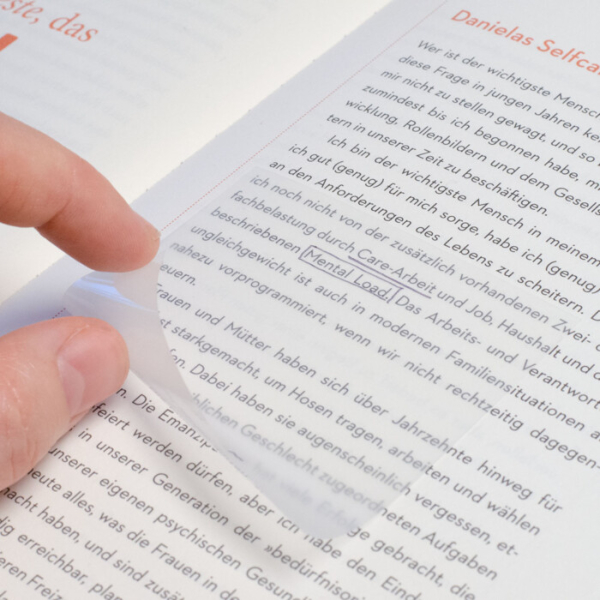 ste, das
Danielas Selfca
Wer ist der wichtigste Mensch
diese Frage in jungen Jahren ke
mir nicht zu stellen gewagt, und so
zumindest bis ich begonnen habe, m
wicklung, Rollenbildern und dem Gesells
tern in unserer Zeit zu beschäftigen.
Ich bin der wichtigste Mensch in meinem
ich gut (genug) für mich sorge, habe ich (genug)
an den Anforderungen des Lebens zu scheitern. D
ich noch nicht von der zusätzlich vorhandenen Zwei-
fachbelastung durch Care-Arbeit und Job, Haushalt und d
beschriebenen Mental Load. Das Arbeits- und Verantwort
ungleichgewicht ist auch in modernen Familiensituationen a
nahezu vorprogrammiert, wenn wir nicht rechtzeitig dagegen-
euern.
Frauen und Mütter haben sich über Jahrzehnte hinweg für
st starkgemacht, um Hosen tragen, arbeiten und wählen
fen. Dabei haben sie augenscheinlich vergessen, et-
blichen Geschlecht zugeordneten Aufgaben
n. Die Emanzip
efeiert werden dürfen, aber ich habe den Eind
in unserer Generation der »bedürfnisori
unserer eigenen psychischen Gesun
heute alles, was die Frauen in de
macht haben, und sind zusä
dig erreichbar, plan
feren Freiz